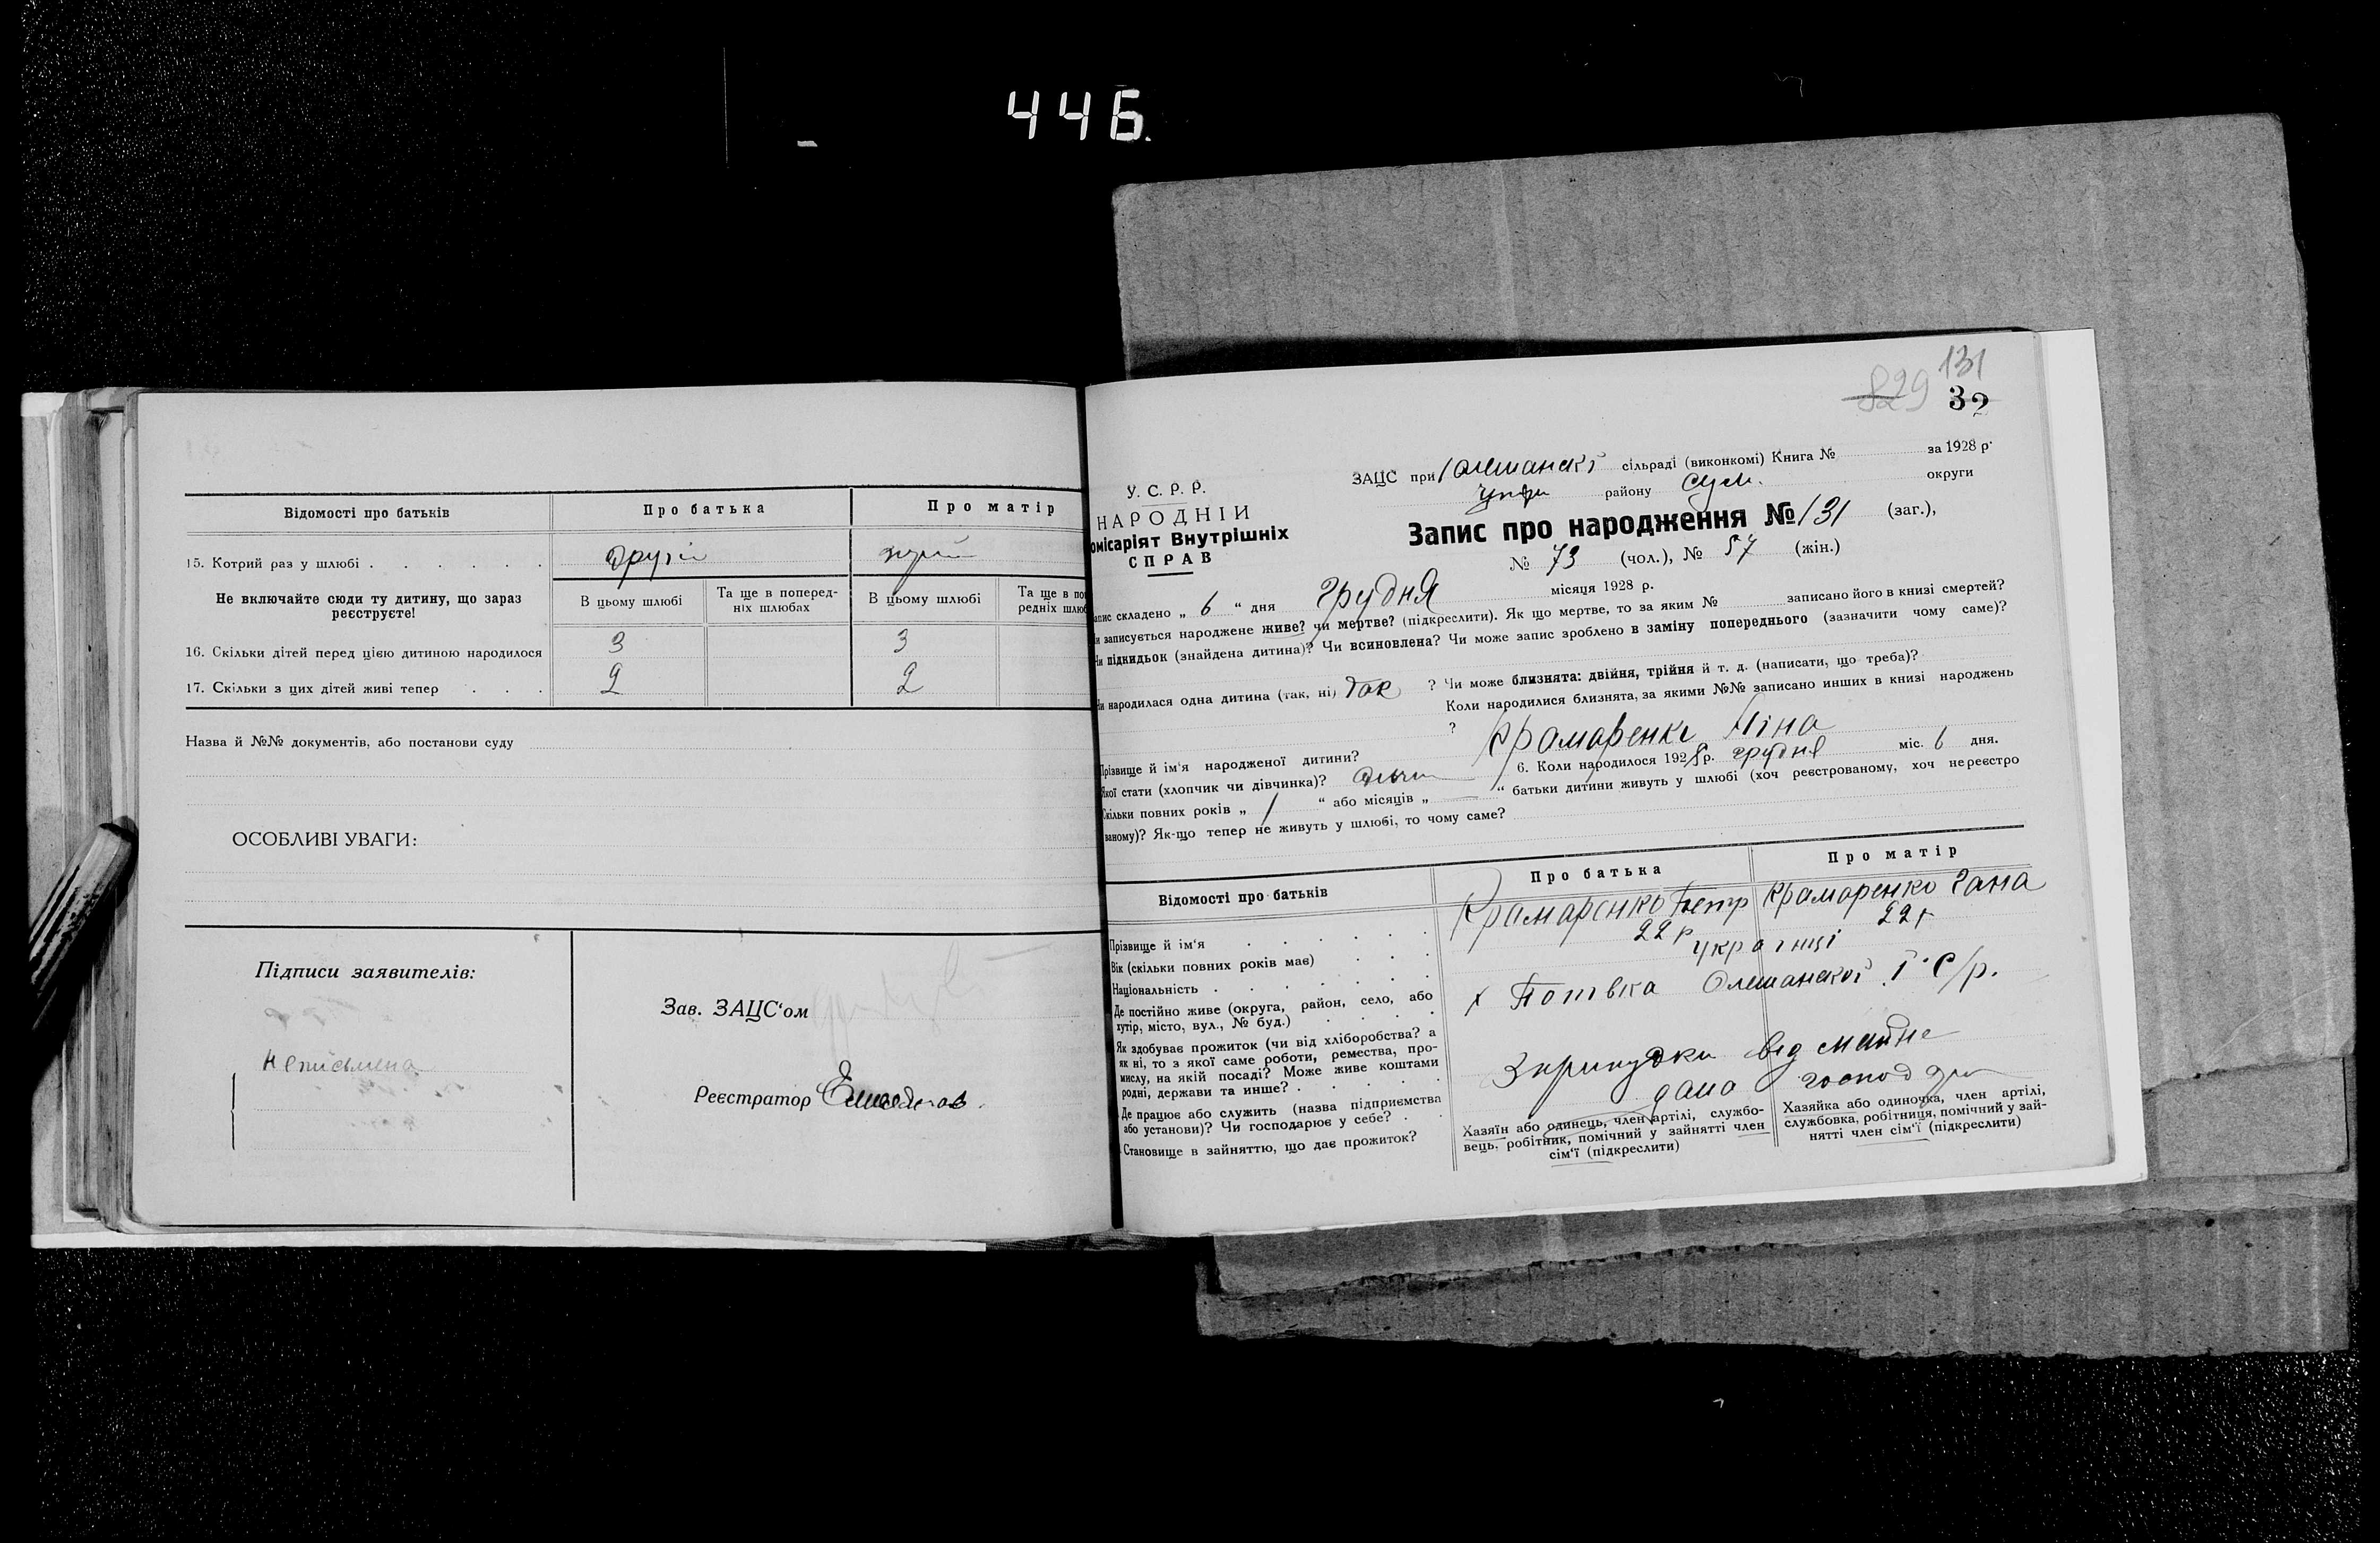 446.
Відомості про батьків Про батька Про матір
15. Котрий раз у шлюбі другій
Не включайте сюди ту дитину, що зараз реєструєте!
В цьому шлюбі Та ще в попередніх шлюбах В цьому шлюбі Та ще в по редніх шлюб
16. Скільки дітей перед цією дитиною народилося 3 3
17. Скільки з цих дітей живі тепер 2 2
Назва й №№ документів, або постанови суду
ОСОБЛИВІ УВАГИ:
Підписи заявителів:
Неписьмена
Зав. ЗАЦС'ом
Реєстратор
829 131
32
У. С. Р. Р.
НАРОДНІЙ
омісаріят Внутрішніх
СПРАВ
ЗАЦС при Олешанскі сільраді (виконкомі) Книга № за 1928 р.
району Сум. округи
Запис про народження № 131 (заг.),
№ 73 (чол.), № 57 (жін.)
апис складено „ 6 “ дня Грудня місяця 1928 р.
и записується народжене живе? чи мертве? (підкреслити). Як що мертве, то за яким № записано його в книзі смертей?
Чи підкидьок (знайдена дитина)? Чи всиновлена? Чи може запис зроблено в заміну попереднього (зазначити чому саме)?
Чи народилася одна дитина (так, ні) Так ? Чи може близнята: двійня, трійня й т. д. (написати, що треба)?
Коли народилися близнята, за якими №№ записано инших в книзі народжень
?
Прізвище й ім'я народженої дитини? Крамаренко Ніна
Якої стати (хлопчик чи дівчинка)? 6. Коли народилося 1928 р. грудня міс. 6 дня.
Скільки повних років „ 1 “ або місяців „ — “ батьки дитини живуть у шлюбі (хоч реєстрованому, хоч нереєстро
ваному)? Як-що тепер не живуть у шлюбі, то чому саме?
Відомості про батьків Про батька Про матір
Прізвище й ім'я Крамаренко Петр Крамаренко Гана
Вік (скільки повних років має) 22 р 22 р
Національність українці
Де постійно живе (округа, район, село, або хутір, місто, вул., № буд.) х Потвка Олешанскої С/р.
Як здобуває прожиток (чи від хліборобства? а як ні, то з якої саме роботи, ремества, промислу, на якій посаді? Може живе коштами родні, держави та инше?
Де працює або служить (назва підприємства або установи)? Чи господарює у себе?
Становище в зайняттю, що дає прожиток?
Хазяїн або одинець, член артілі, службовець, робітник, помічний у зайнятті член сім'ї (підкреслити)
Хазяйка або одиночка, член артілі, службовка, робітниця, помічний у зайнятті член сім'ї (підкреслити)